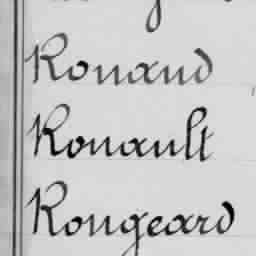 Rouaud
Rouault
Rougeard